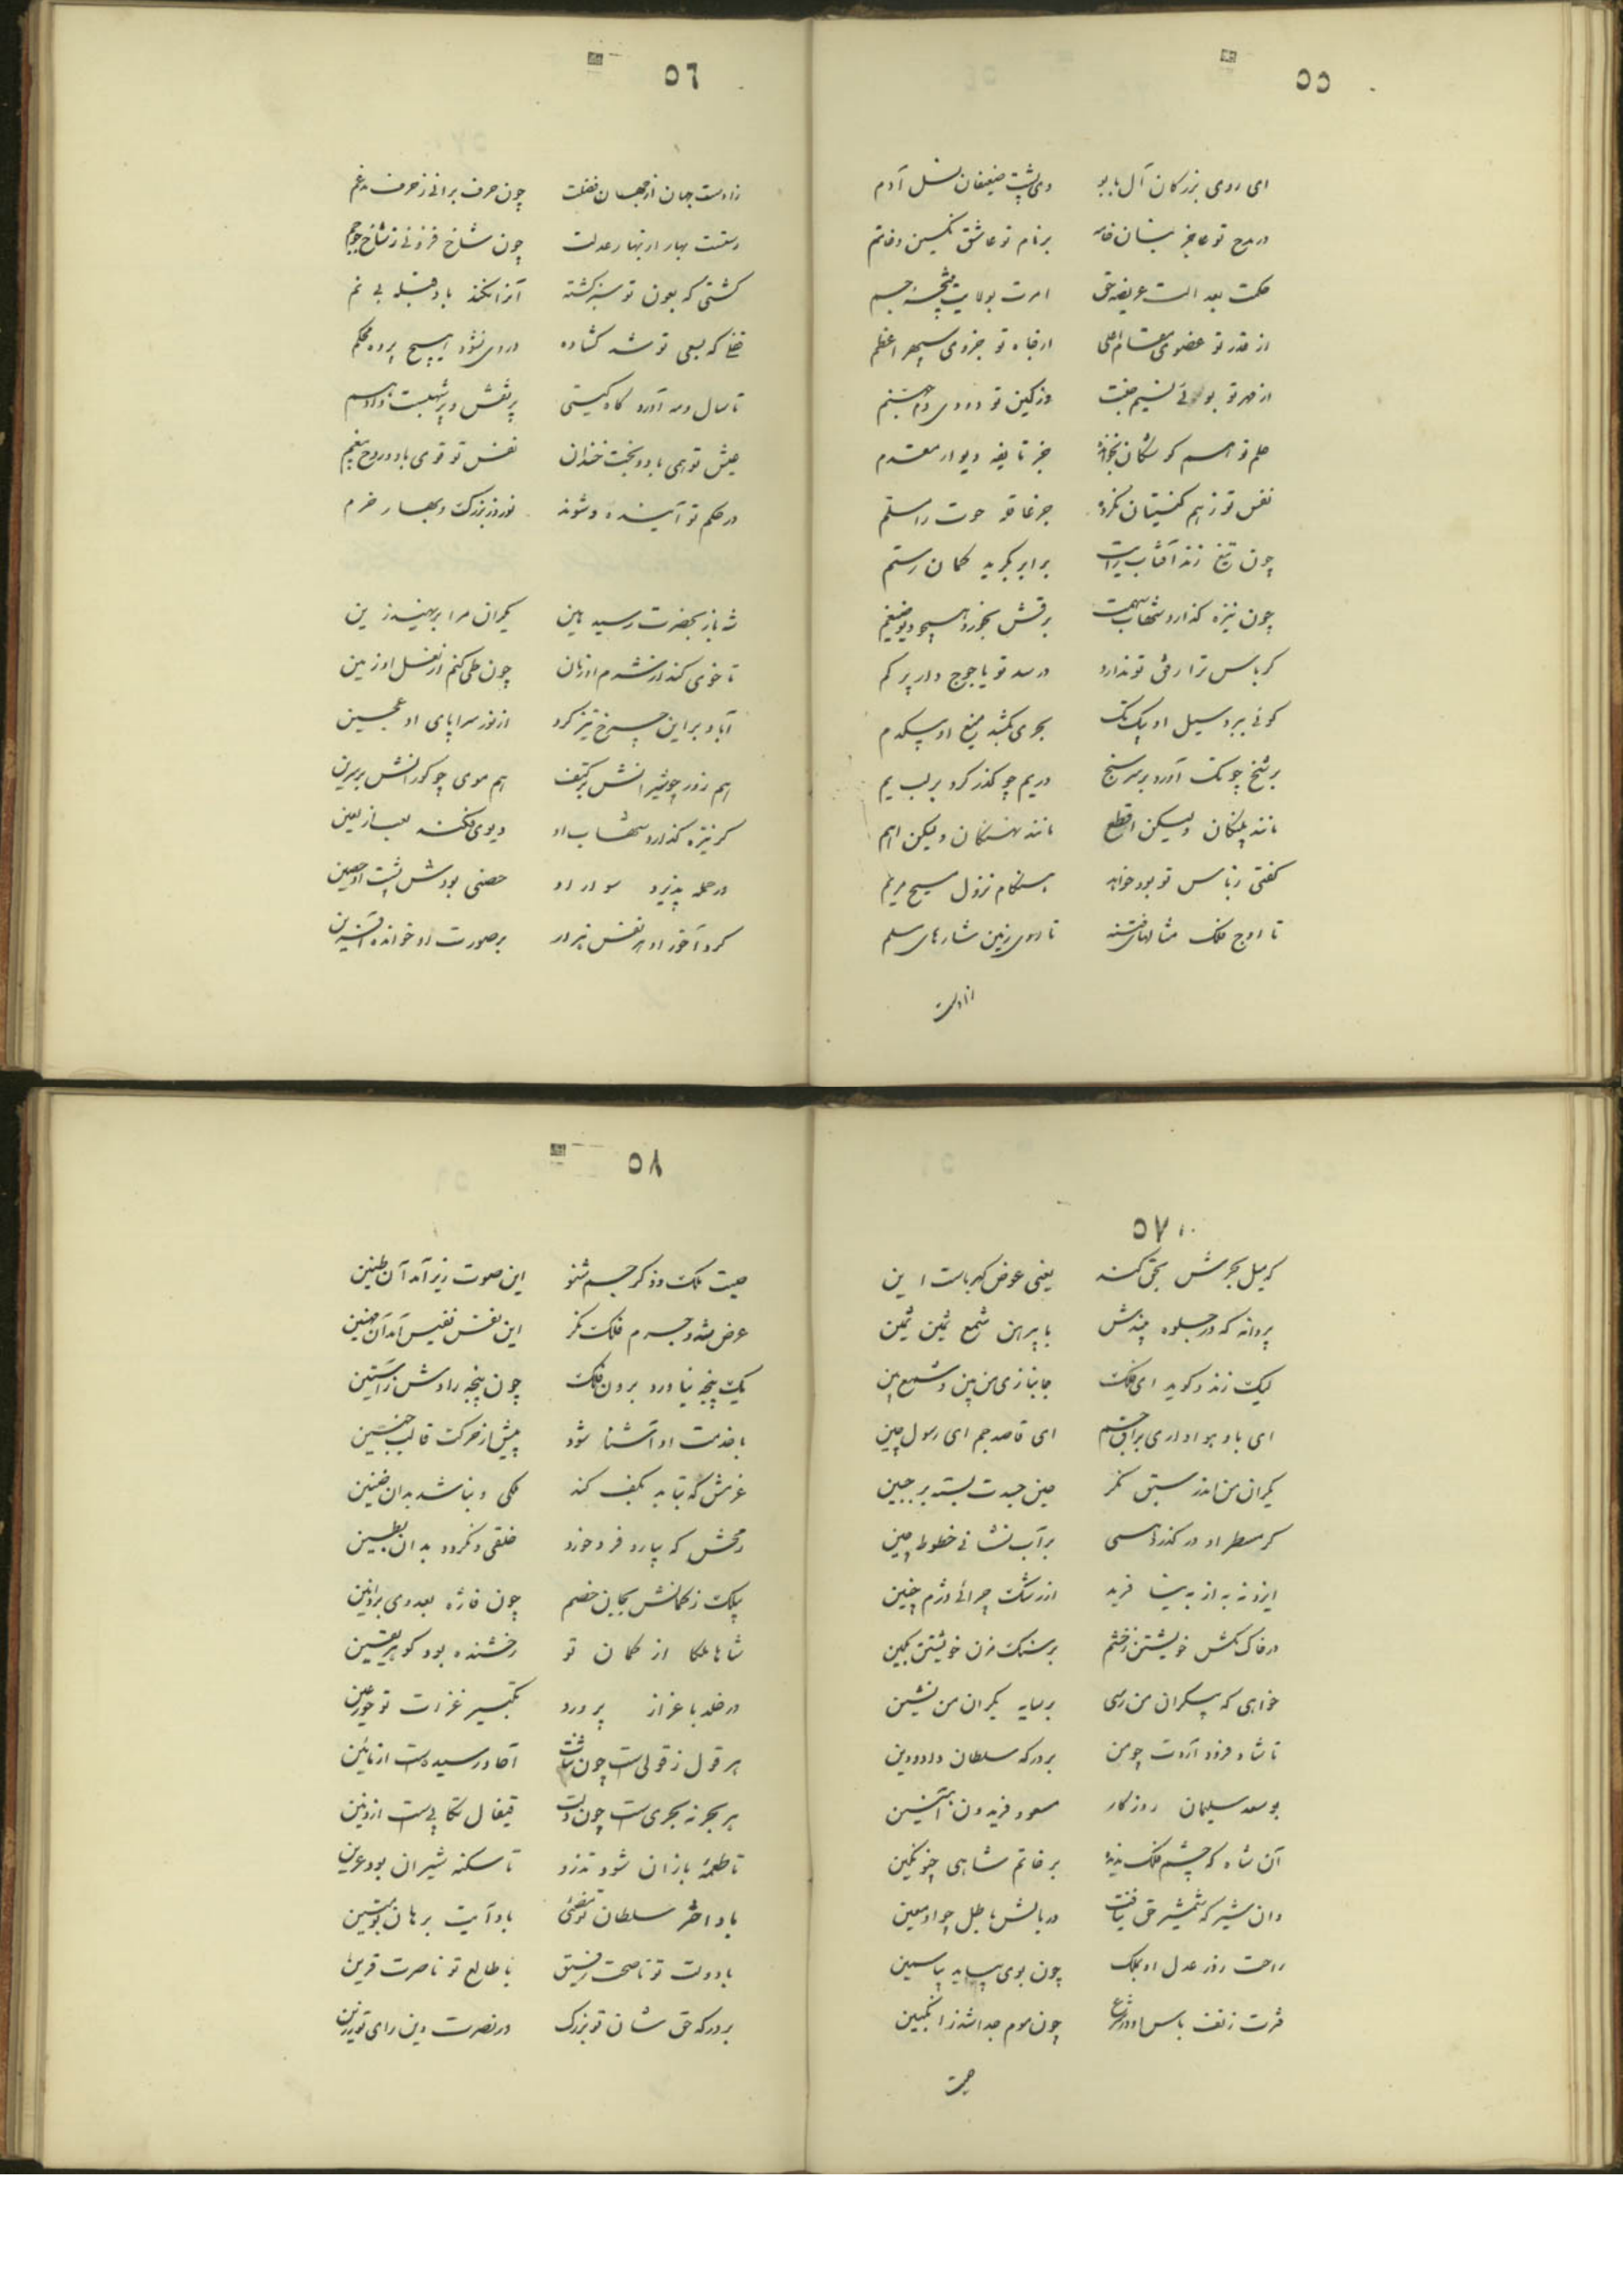 ٥٥
ای روی بزرگان آل یابو    وی پشت ضعیفان نسل آدم
در مدح تو عاجز بنان خامه    بر نام تو عاشق نگین و خاتم
حکمت بعد الست عریضه حق    امرت بولایت جم
از قدر تو عضوی    از جاه تو جزوی سپهر اعظم
از مهر تو بوئی نسیم جنت    وز کین تو دودی
حلم تو    جز تا بقد دیوار معتصم
نفس تو ز هم نکرده    جز فاقه حوت را مسلم
چون تیغ زند آفتاب رایت    برابر بگرید کمان رستم
چون نیزه گذارد شهاب سهمت    برقش بخورد
کرباس ترا رقی تو ندارد    در سد تو یاجوج وار پر کم
گوئی ببرد سیل او بیک تک    بحری بکشد تیغ او بیکدم
بر شخ چو تک آورد بر سر سنج    در یم چو گذر کرد بر لب یم
مانند پلنگان ولیکن اقطع    مانند نهنگان ولیکن ابکم
گفتی ز باس تو بود خواهد    هنگام نزول مسیح مریم
تا اوج فلک مثالهای فتنه    تا روی زمین
زادست
٥٦
زادست جهان از جهان فضلت    چون حرف برانی ز حرف مدغم
رستست بهار از بهار عدلت    چون شاخ فزونی ز شاخ
کشتی که بعون تو سبز گشته    آنرا نکند باد قبله بی نم
که بسعی تو شد گشاده    در وی نشود هیچ پرده محکم
تا سال و مه آورد گاه گیتی    پر نقش
عیش تو همی باد و بخت خندان    نفس تو قوی باد و روح بیغم
در حکم تو آینده و شونده    نوروز بزرگ و بهار خرم
شه باز بحضرت رسید هین    یکران مرا بر نهید زین
تا خوی کند از شرم او زمان    چون طی کنم از نعل او زمین
آباد بر این چرخ تیز گرد    از نور سراپای او عجین
هم زور چو شیرانش بر کتف    هم موی چو گورانش بر سرین
گر نیزه گذارد شهاب او    دیوی فکند لعب از لعین
در حمله پذیرد سوار او    حصنی بود پشت او حصین
گرد آخور او هر نفس هزار    بر صورت او خوانده آفرین
٥٧
که میل بجرمش بحق کند    یعنی عوض کهرباست این
پروانه که در جلوه بیندش    با پیرهن شمع ثمین ثمین
لبیک زند و گوید ای فلک    جانبازی من بین و شمع بین
ای باد هواداری براق جم    ای قاصد جم ای رسول چین
یکران من اندر سبق نگر    چین حسدت بسته بر جبین
گر مسطر او در گذر نهی    بر آب نشانی خطوط چین
ایزد نه به از به بیند آفرید    از رشک چرائی دژم چنین
در خاک مکش خویشتن ز خشم    بر سنگ مزن خویشتن بکین
خواهی که به یکران من رسی    بر سایه یکران من نشین
تا شاد فرود آردت چو من    بر درگه سلطان داد و دین
بو سعد سلیمان روزگار    مسعود فریدون آبتین
آن شاه که چشم فلک ندید    بر خاتم شاهی چنو نگین
وان شیر که شمشیر حق نیافت    در بالش باطل چو او معین
راحت رود عدل او بملک    چون بوی بیاید بیاسمین
فرت ز تف باس او ز شرع    چون موم جدا شد ز انگبین
صیت
٥٨
صیت ملک و ذکر جم شنو    این صوت زیر آمد آن طنین
عرض شه و جرم فلک نگر    این نفس نفیس آمد آن مهین
یک پنجه نیاورد برون فلک    چون پنجه رادش ز آستین
با خدمت او آشنا شود    پیش از حرکت قالب جنین
عزمش که نتابد بکف کند    ملکی و نباشد بدان ضنین
رمحش که بیارد فرو خورد    خلقی و نگردد بدان بطین
پیلک ز کمانش بجان خصم    چون فاژه بعدوی برد انین
شاها ملکا از کمان تو    رخشنده بود گوهر یقین
در خلد باعزاز پرورد    تکبیر غزات تو حور عین
هر قول ز قولی است چون    آحاد رسیدست از مائین
هر بحر نه بحری ست چون دلت    قیفال نکابی ست از وتین
تا طعمه بازان شود تذرو    تا سکنه شیران بود عرین
باد اختر سلطان تو مضی    باد آیت برهان تو مبین
با دولت تو ناصحت رفیق    با طالع تو ناصرت قرین
بر درگه حق شان تو بزرگ    در نصرت دین رای تو رزین